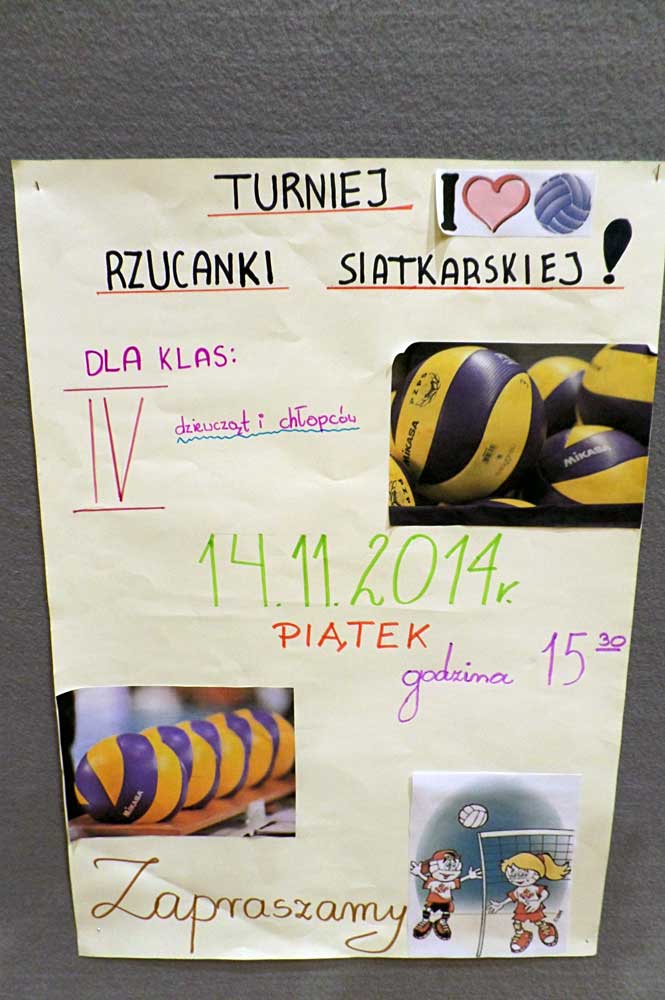 TURNIEJ I
RZUCANKI SIATKARSKIEJ!
DLA KLAS:
IV dziewcząt i chłopców
PZPS
MIKASA
MIKASA
14.11.2014r.
PIĄTEK
godzina 15 30
MIKASA
Zapraszamy